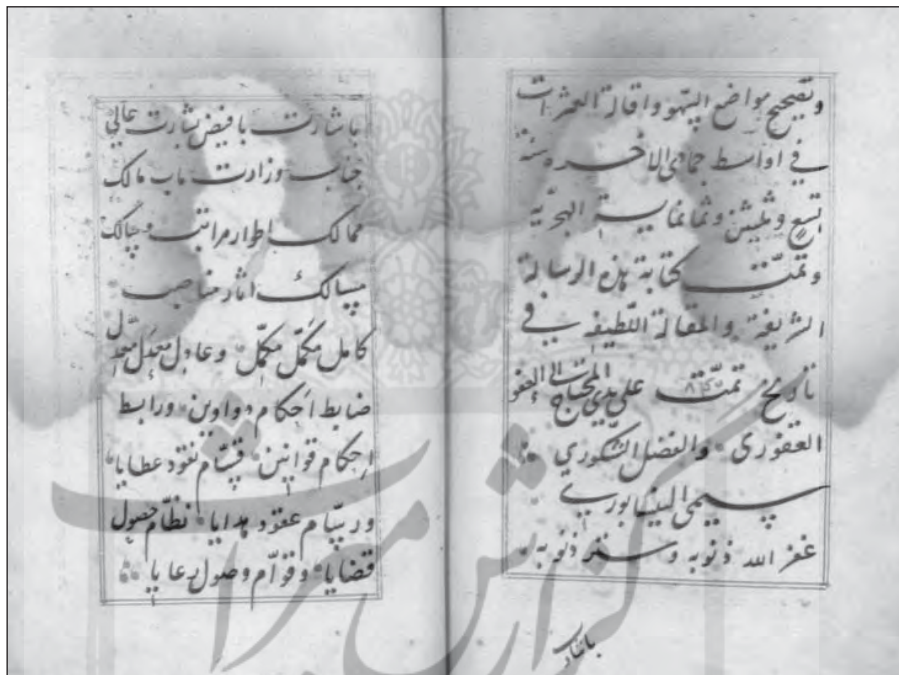 وتصحیح مواضع السهو واقالة العثرات
في اواسط جمادی الاخره سنة
تسع وثلثین وثمانمایة الهجریة
وتمت کتابة هذه الرسالة
الشریفة والمقالة اللطیفة في
تاریخ تمت علی یدي المحتاج الی العفو
الغفوری والفضل الشکوري
سیمی النیسابوري
غفر الله ذنوبه وستر
باشارت
باشارت با فیض بشارت عالی
جناب وزارت ماب مالک
ممالک اطوار مراتب و سالک
مسالک اثار مناصب
کامل مکمل مکمل وعادل معدل معدل
ضابط احکام دواوین ورابط
احکام قوانین قسام نقود عطایا
ورسام عقود هدایا نظام حصول
قضایا وقوام وصول رعایا
گزارش میراث